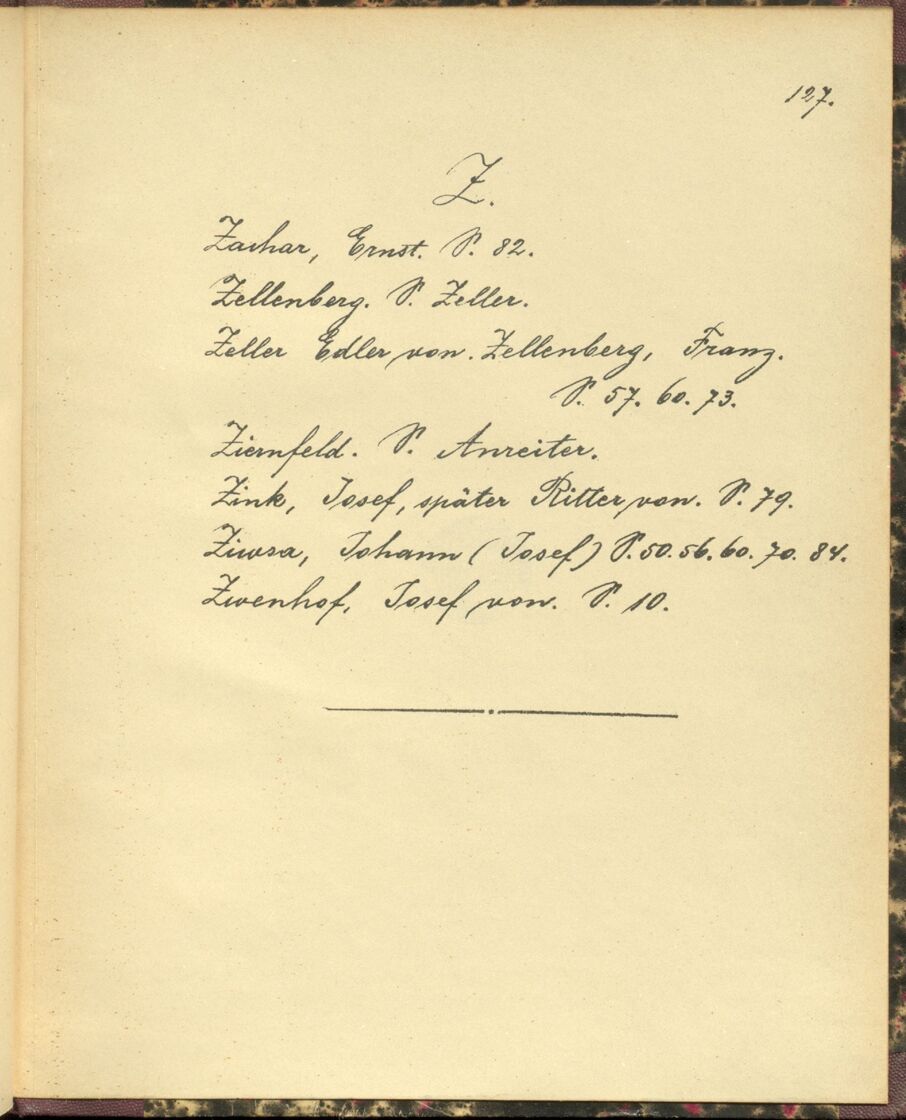 127.
Z.
Zachar, Ernst. S. 82.
Zellenberg. S. Zeller.
Zeller Edler von. Zellenberg, Franz.
S. 57. 60. 73.
Ziernfeld. S. Anreiter.
Zink, Josef, später Ritter von. S. 79.
Ziwsa, Johann (Josef) S. 50. 56. 60. 70. 84.
Zwenhof, Josef von. S. 10.